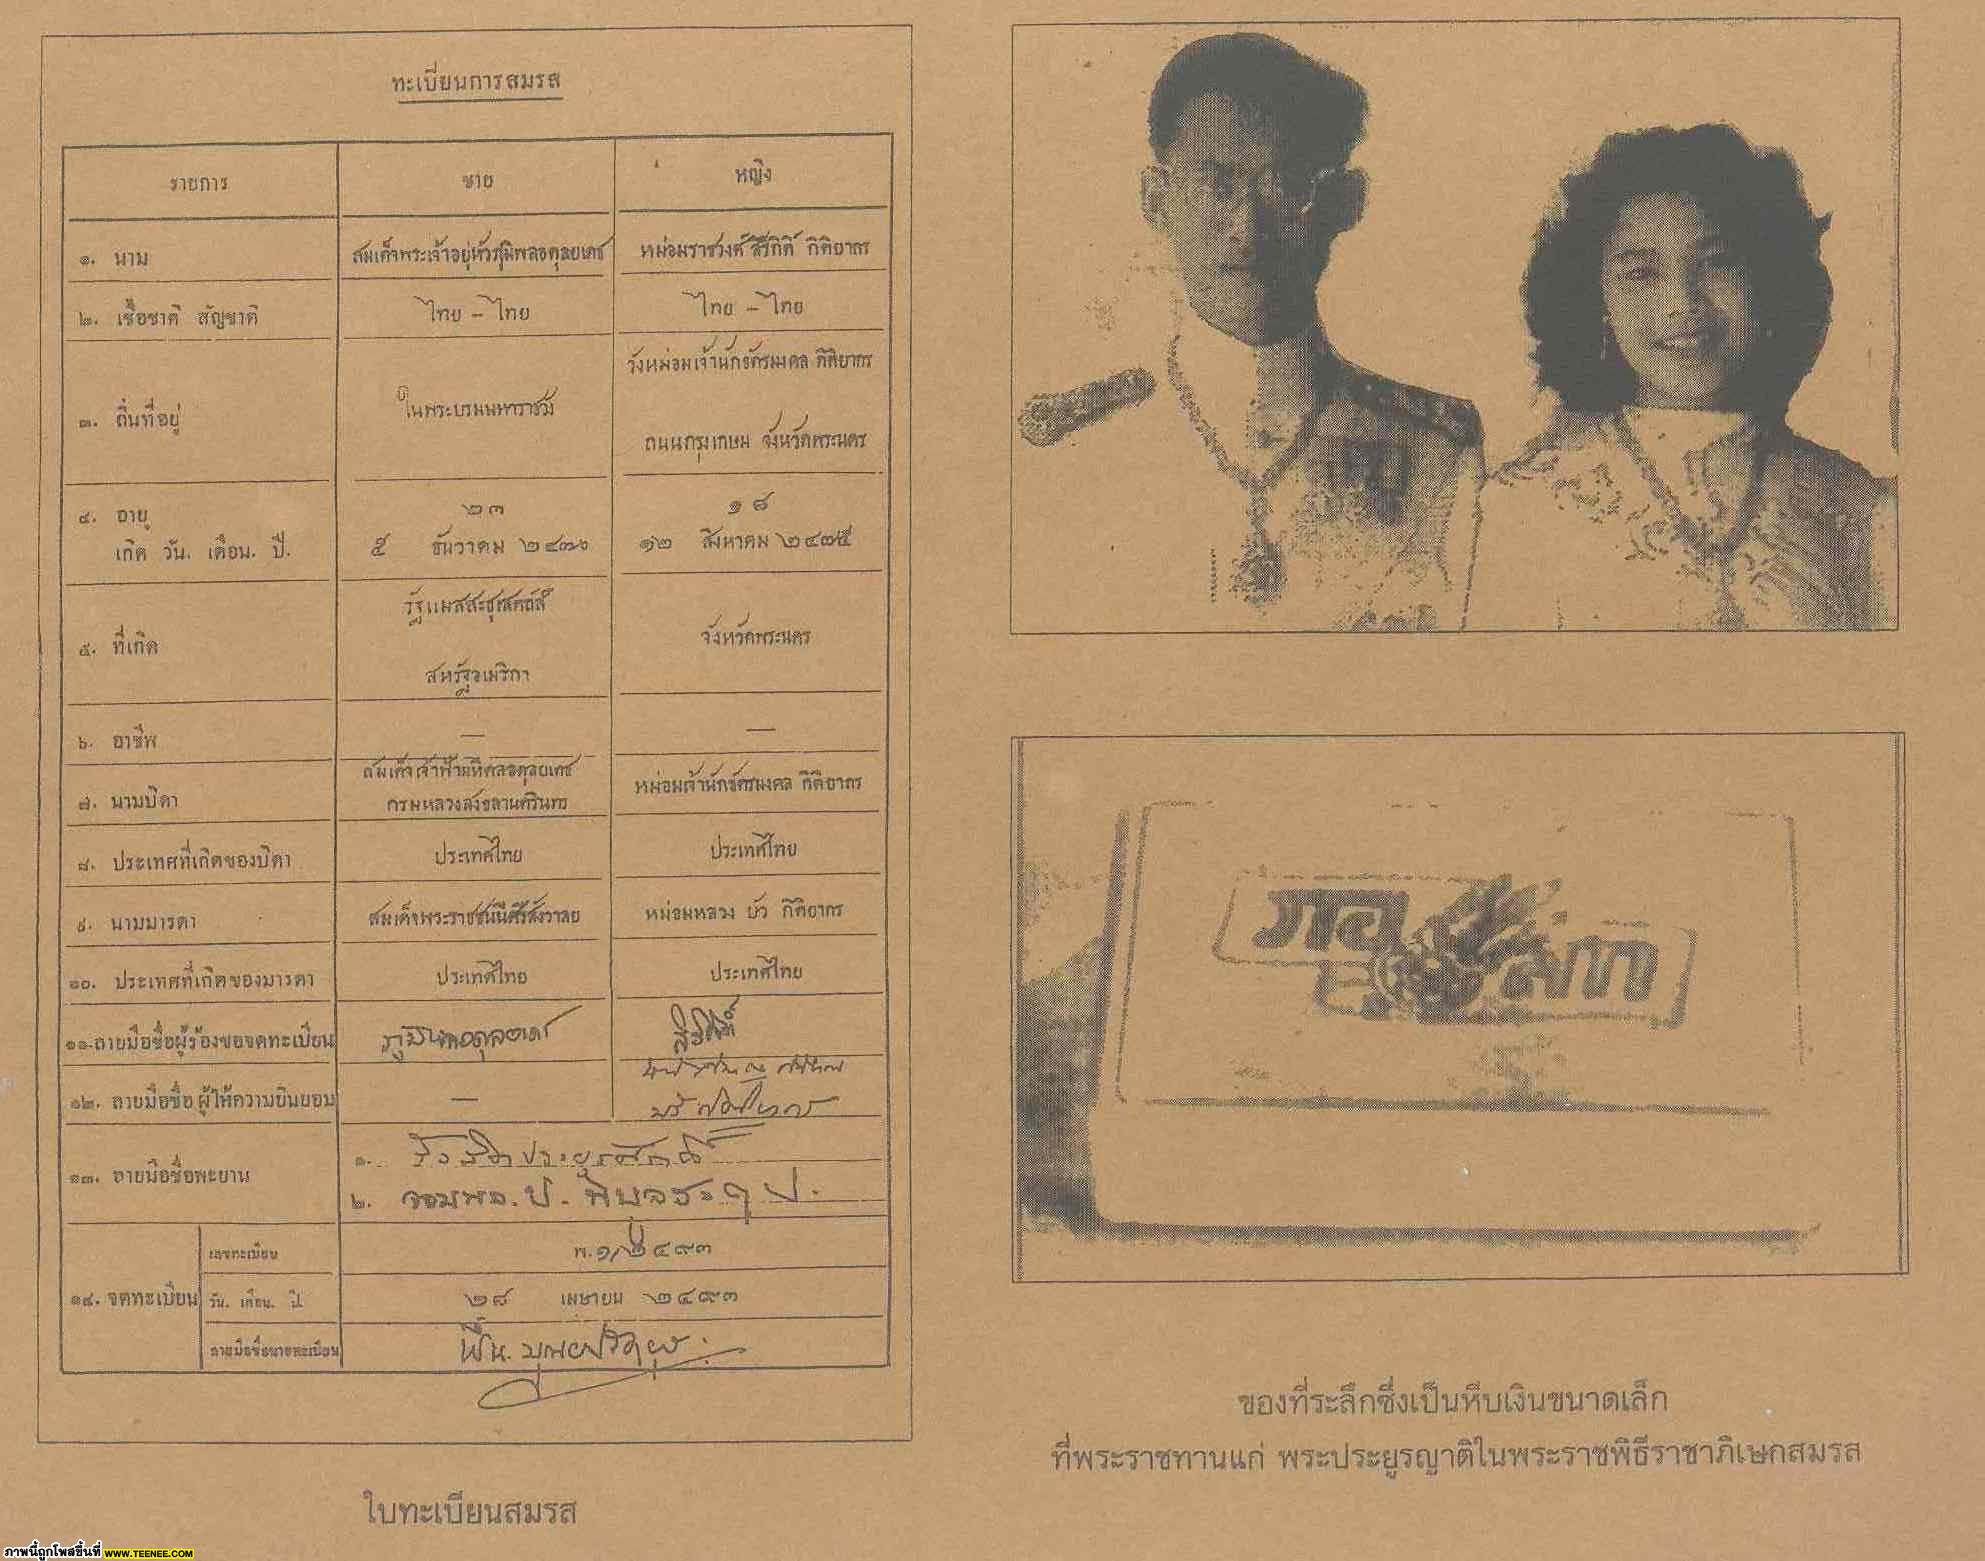 ทะเบียนการสมรส
รายการ ชาย หญิง
๑. นาม สมเด็จพระเจ้าอยู่หัวภูมิพลอดุลยเดช หม่อมราชวงศ์ สิริกิติ์ กิติยากร
๒. เชื้อชาติ สัญชาติ ไทย – ไทย ไทย – ไทย
๓. ถิ่นที่อยู่ ในพระบรมมหาราชวัง วังหม่อมเจ้านักขัตรมงคล กิติยากร
ถนนกรุงเกษม จังหวัดพระนคร
๔. อายุ ๒๓ ๑๘
เกิด วัน. เดือน. ปี. ๕ ธันวาคม ๒๔๗๐ ๑๒ สิงหาคม ๒๔๗๕
๕. ที่เกิด รัฐแมสสะชูเสตส์ จังหวัดพระนคร
สหรัฐอเมริกา
๖. อาชีพ — —
๗. นามบิดา สมเด็จเจ้าฟ้ามหิดลอดุลยเดช หม่อมเจ้านักขัตรมงคล กิติยากร
กรมหลวงสงขลานครินทร
๘. ประเทศที่เกิดของบิดา ประเทศไทย ประเทศไทย
๙. นามมารดา สมเด็จพระราชชนนีศรีสังวาลย หม่อมหลวง บัว กิติยากร
๑๐. ประเทศที่เกิดของมารดา ประเทศไทย ประเทศไทย
๑๑. ลายมือชื่อผู้ร้องขอจดทะเบียน ภูมิพลอดุลยเดช สิริกิติ์
๑๒. ลายมือชื่อ ผู้ให้ความยินยอม —
๑๓. ลายมือชื่อพะยาน ๑.
๒. จอมพล. ป. พิบูลสงคราม
๑๔. จดทะเบียน เลขทะเบียน พ.๑/๒๔๙๓
วัน. เดือน. ปี. ๒๘ เมษายน ๒๔๙๓
ลายมือชื่อนายทะเบียน
ใบทะเบียนสมรส
ภอ
สก
ของที่ระลึกซึ่งเป็นหีบเงินขนาดเล็ก
ที่พระราชทานแก่ พระประยูรญาติในพระราชพิธีราชาภิเษกสมรส
ภาพนี้ถูกโพสขึ้นที่ WWW.TEENEE.COM